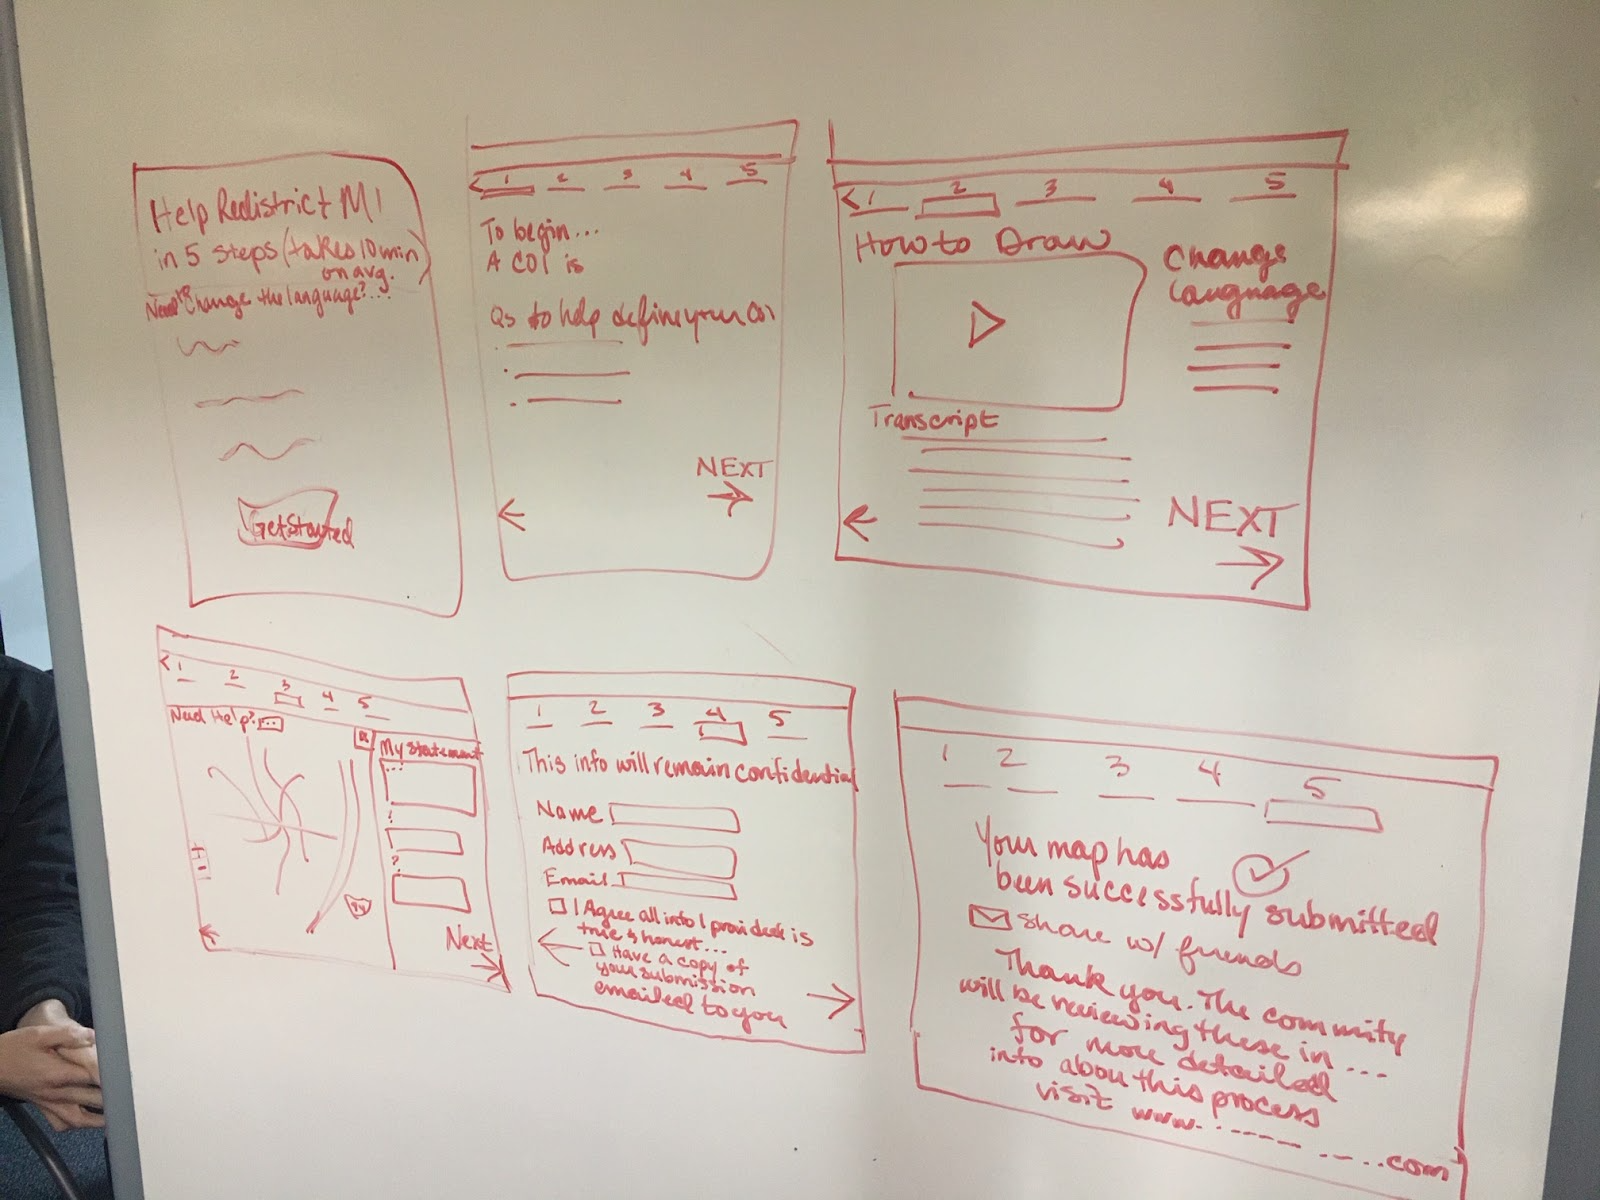 Help Redistrict MI
in 5 steps (takes 10 min
on avg.)
Need to Change the language?...
Get Started
< 1 2 3 4 5
To begin...
A COI is
Qs to help define your COI
NEXT
< 1 2 3 4 5
How to Draw
Change
Language
Transcript
NEXT
< 1 2 3 4 5
Need Help? ...
My Statement
?
94
+
-
Next
1 2 3 4 5
This info will remain confidential
Name
Address
Email
I Agree all info I provided is
true & honest...
Have a copy of
your submission
emailed to you
1 2 3 4 5
Your map has
been successfully submitted
share w/ friends
Thank you. The community
will be reviewing these in ...
for more detailed
info about this process
visit www. - - - - - - - - . . . com